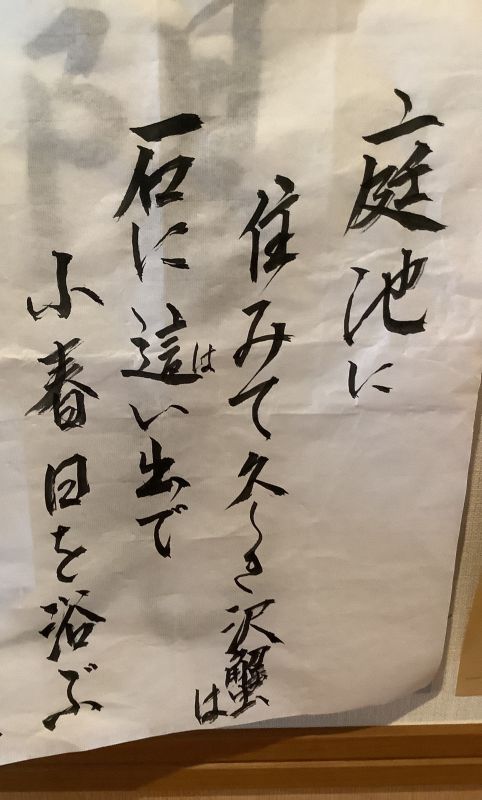 庭池に
住みて久しき沢蟹は
石に這い出で
小春日を浴ぶ
は